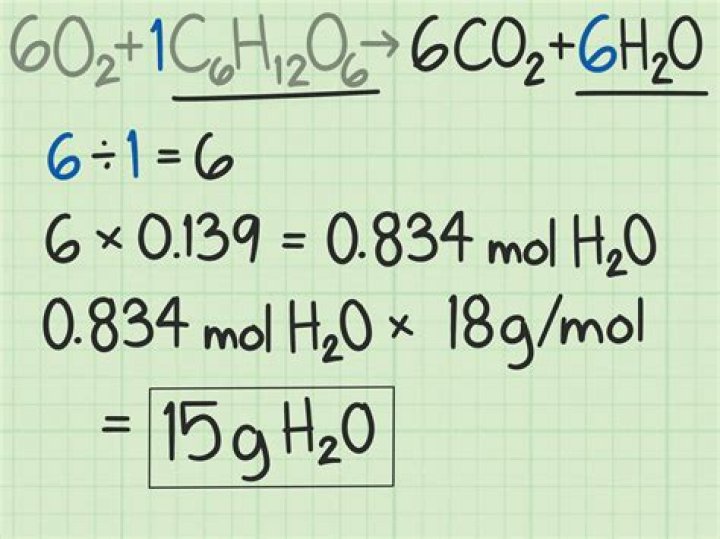 6O₂+1C₆H₁₂O₆→6CO₂+6H₂O
6÷1=6
6×0.139=0.834 mol H₂O
0.834 mol H₂O × 18g/mol
= 15g H₂O